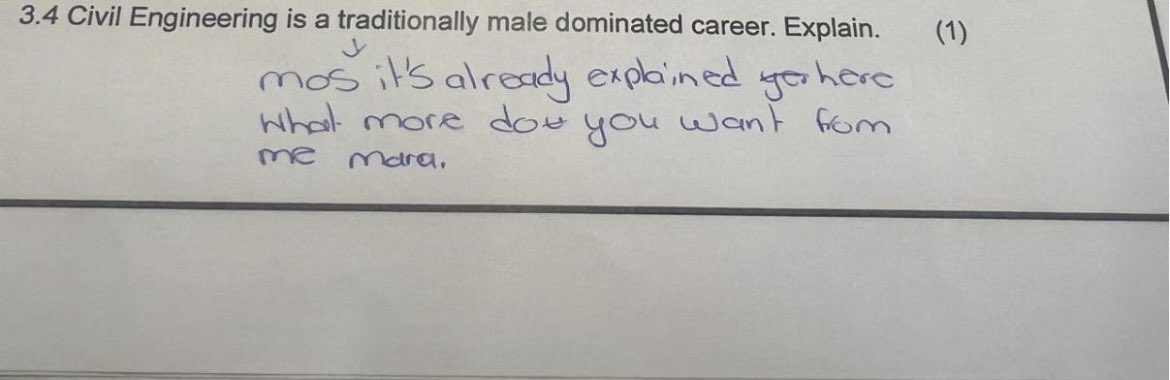 3.4 Civil Engineering is a traditionally male dominated career. Explain. (1)
mos it's already explained here
what more do you want from
me mara.